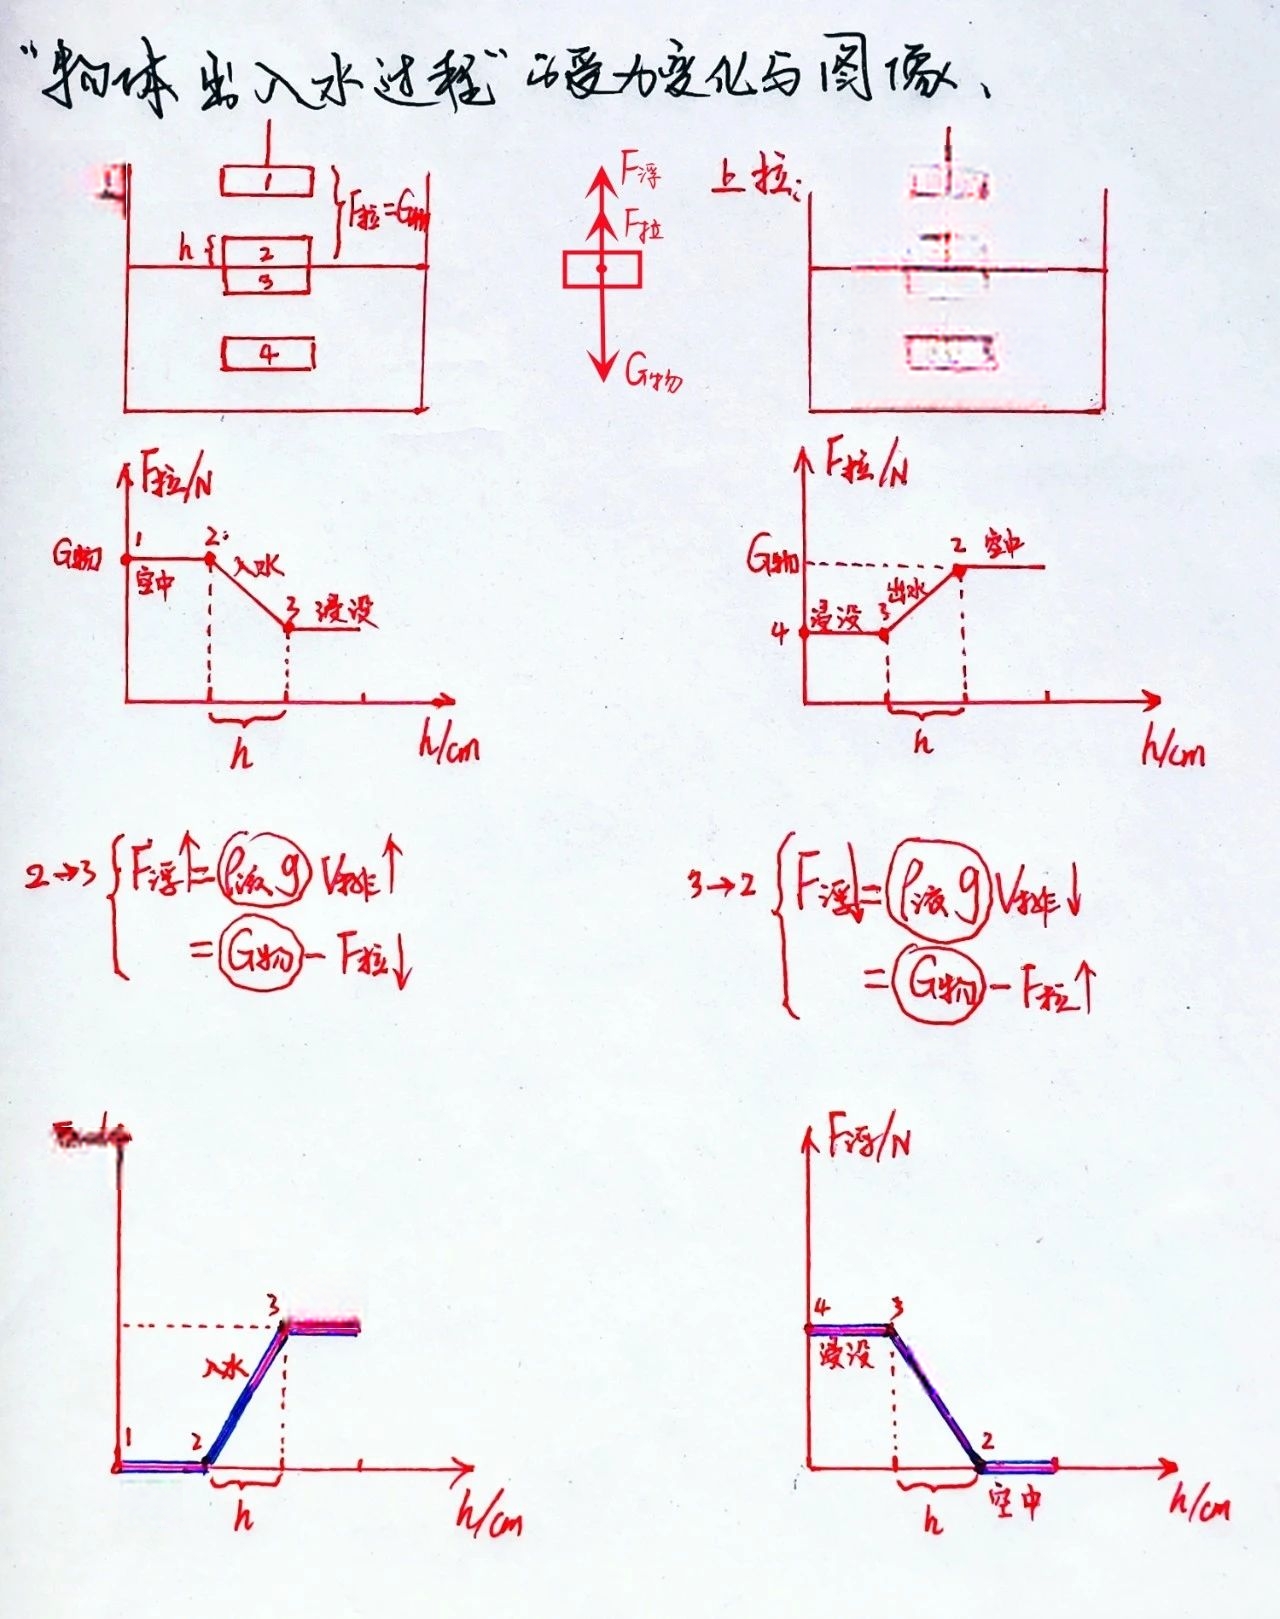 "物体出入水过程"的受力变化与图像、
1
F拉=G物
h
2
3
4
F浮
F拉
G物
上拉:
F拉/N
G物
1
2
空中
入水
3
浸没
h
h/cm
F拉/N
G物
2
空中
出水
4
浸没
3
h
h/cm
2→3
F浮↑=ρ液gV排↑
=G物-F拉↓
3→2
F浮↓=ρ液gV排↓
=G物-F拉↑
3
入水
1
2
h
h/cm
F浮/N
4
3
浸没
2
空中
h
h/cm